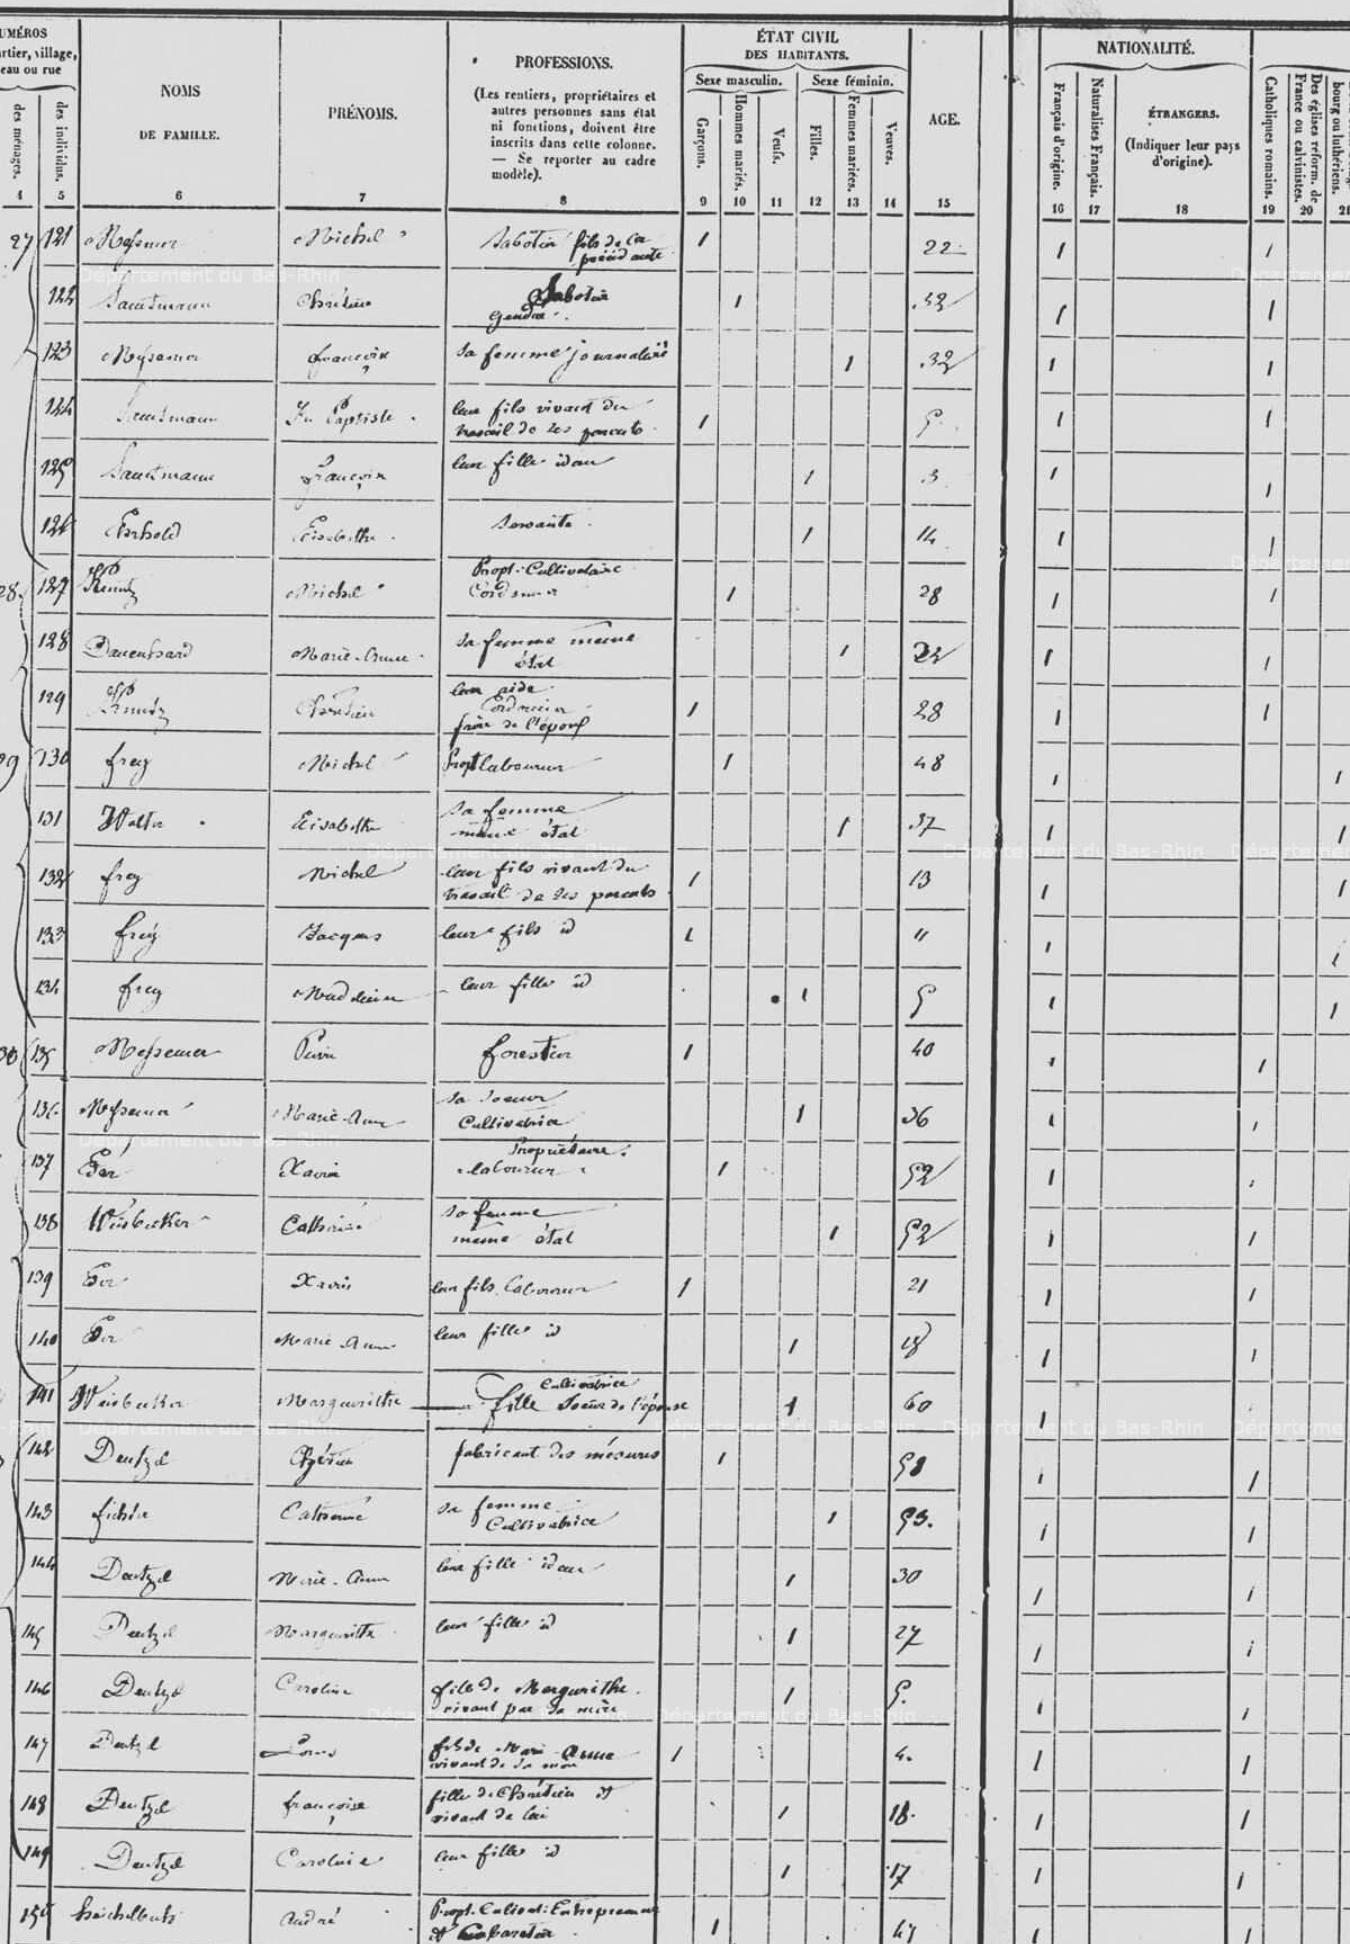 NUMÉROS
quartier, village,
hameau ou rue
des ménages.
des individus.
NOMS
DE FAMILLE.
PRÉNOMS.
PROFESSIONS.
(Les rentiers, propriétaires et
autres personnes sans état
ni fonctions, doivent être
inscrits dans cette colonne.
— Se reporter au cadre
modèle).
ÉTAT CIVIL
DES HABITANTS.
Sexe masculin. Sexe féminin.
Garçons.
Hommes mariés.
Veufs.
Filles.
Femmes mariées.
Veuves.
AGE.
NATIONALITÉ.
Français d'origine.
Naturalisés Français.
ÉTRANGERS.
(Indiquer leur pays
d'origine).
Catholiques romains.
Des églises réform. de
France ou calvinistes.
bourg ou luthériens.
4 5 6 7 8 9 10 11 12 13 14 15 16 17 18 19 20 21
27 121 Messemer Michel Sabotier fils de la
précédente 1 22 1 1
122 Chrétien Sabotier
Gendre 1 32 1 1
123 Messemer Françoise sa femme journalière 1 32 1 1
124 Jn Baptiste leur fils vivant du
travail de ses parents 1 5 1 1
125 Françoise leur fille idem 1 3 1 1
126 Elisabethe Servante 1 14 1 1
28 127 Kuntz Michel Propt. Cultivateur
Cordonnier 1 28 1 1
128 Marie-Anne sa femme meme
état 1 22 1 1
129 Kuntz Chrétien leur aide
Cordonnier
frère de l'époux 1 28 1 1
29 130 frey Michel Propt laboureur 1 48 1 1
131 Walter Elisabethe sa femme
même état 1 37 1 1
132 frey Michel leur fils vivant du
travail de ses parents 1 13 1 1
133 frey Jacques leur fils id 1 11 1 1
134 frey Madeleine leur fille id 1 5 1 1
30 135 Messemer Pierre forestier 1 40 1 1
136 Messemer Marie-Anne sa soeur
Cultivatrice 1 36 1 1
137 Xavier Propriétaire
laboureur 1 52 1 1
138 Weisbecker Catherine sa femme
meme état 1 52 1 1
139 Xavier leur fils laboureur 1 21 1 1
140 Marie Anne leur fille id 1 18 1 1
141 Weisbecker Marguerithe Cultivatrice
fille Soeur de l'épouse 1 60 1
142 Dentzel fabricant des mésures 1 58 1 1
143 fichter Catherine sa femme
Cultivatrice 1 53 1 1
144 Dentzel Marie-Anne leur fille idem 1 30 1 1
145 Dentzel Marguerithe leur fille id 1 27 1 1
146 Dentzel Caroline fille de Marguerithe
vivant par sa mère 1 5 1 1
147 Dentzel Louis fils de Marie-Anne
vivant de sa mère 1 4 1 1
148 Dentzel françoise fille de Chrétien
vivant de lui 1 18 1 1
149 Dentzel Caroline leur fille id 1 17 1 1
150 André Propt. Cultivat. Entrepreneur
et Cabaretier 1 47 1 1
Département du Bas-Rhin